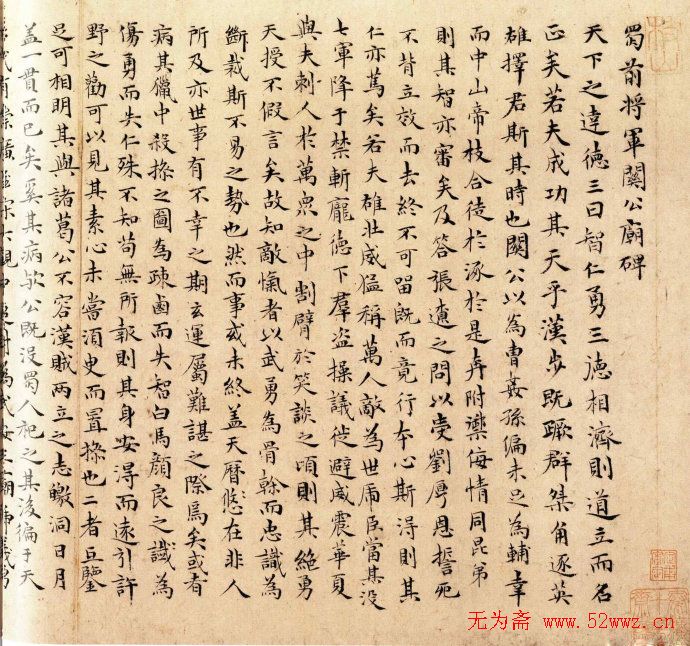 蜀前将軍關公廟碑
天下之達德三曰智仁勇三德相濟則道立而名
正矣若夫成功其天乎漢步既蹶群桀角逐英
雄擇君斯其時也關公以為曹姦孫偏未足為輔幸
而中山帝枝合徒於涿於是奔附禦侮情同昆弟
則其智亦審矣及答張遼之問以受劉厚恩誓死
不背立效而去終不可留既而竟行本心斯得則其
仁亦篤矣若夫雄壯威猛稱萬人敵為世虎臣當其没
七軍降于禁斬龐德下羣盗操議徙避威震華夏
與夫刺人於萬衆之中割臂於笑談之頃則其絶勇
天授不假言矣故知敵愾者以武勇為骨榦而忠識為
斷裁斯不易之勢也然而事或未終蓋天曆悠在非人
所及亦世事有不幸之期玄運屬難諶之際焉矣或有
病其獵中殺操之圖為疎鹵而失智白馬顔良之誡為
傷勇而失仁殊不知苟無所報則其身安得而遠引許
野之勸可以見其素心未嘗須史而置操也二者互鑒
足可相明其與諸葛公不容漢賊两立之志皦洞日月
蓋一貫而已矣奚其病歟公既没蜀人祀之其後徧于天
无为斋 www.52wwz.cn